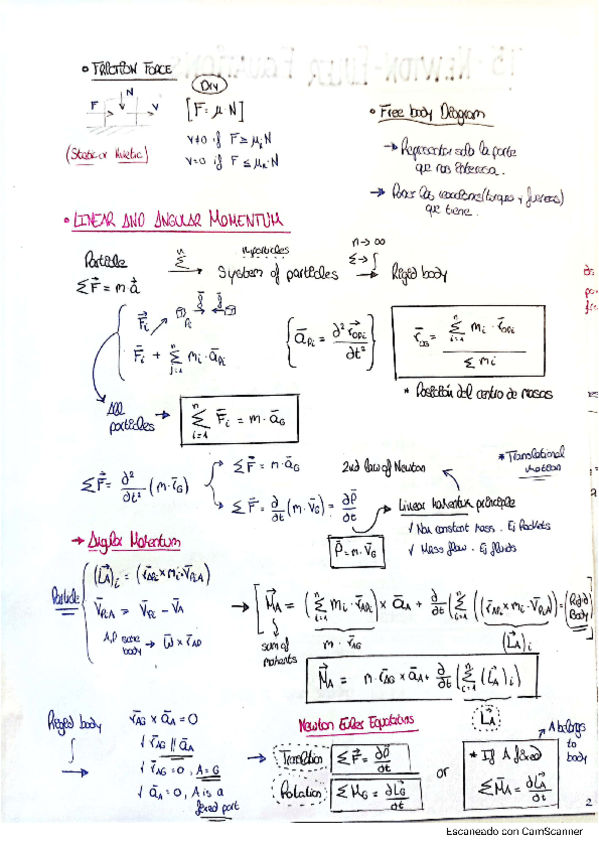 T5 - NEWTON-EULER EQUATIONS
• FRICTION FORCE
Dry
F N V
[F = μ·N]
(Static or Kinetic)
v≠0 if F ≥ μ·N
v=0 if F ≤ μ·N
• Free body Diagram
→ Representar solo la parte
que nos interesa.
→ Poner las reacciones (torques y fuerzas)
que tiene.
• LINEAR AND ANGULAR MOMENTUM
Particle Σⁿ → n particles System of particles n→∞ Σ→∫ → Rigid body
ΣF̄ = m·ā
F̄i Pi
F̄i + Σ(j=1, n) mi·āPi
{āPi = ∂²r̄OPi/∂t²}
r̄OG = Σ(i=1, n) mi·r̄OPi / Σmi
* Posición del centro de masas
All particles → Σ(i=1, n) F̄i = m·āG
ΣF̄ = ∂²/∂t² (m·r̄G)
→ ΣF̄ = m·āG 2nd law of Newton
* Translational motion
→ ΣF̄ = ∂/∂t (m·v̄G) = ∂p̄/∂t
Linear momentum principle
p̄ = m·v̄G
✓ Non constant mass. Ej Rockets
✓ Mass flow. Ej fluids
→ Angular Momentum
Particle
(L̄A)i = (r̄APi × mi·v̄PiA)
v̄PiA = v̄Pi - v̄A
A,P same body → ω̄ × r̄AP
→ [M̄A = (Σ(i=1, n) mi·r̄APi) × āA + ∂/∂t (Σ(i=1, n) ((r̄APi × mi·v̄PiA)) = (Rigid Body)
sum of moments
m·r̄AG
(L̄A)i
M̄A = m·r̄AG × āA + ∂/∂t (Σ(i=1, n) (L̄A)i)
L̄A
Rigid body
∫
r̄AG × āA = 0
✓ r̄AG ∥ āA
✓ r̄AG = 0, A = G
✓ āA = 0, A is a
fixed part
Newton Euler Equations
Translation ΣF̄ = ∂p̄/∂t
Rotation ΣM̄G = ∂L̄G/∂t
or
* If A fixed
ΣM̄A = ∂L̄A/∂t
A belongs
to
body
2
Escaneado con CamScanner